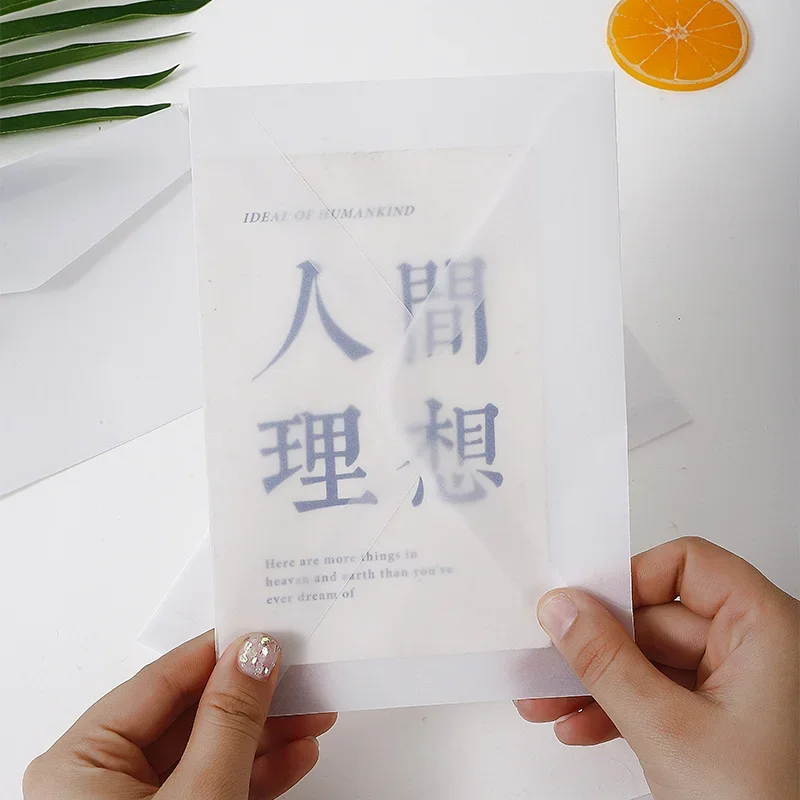 IDEAL OF HUMANKIND
人間
理想
Here are more things in
heaven and earth than you've
ever dream of